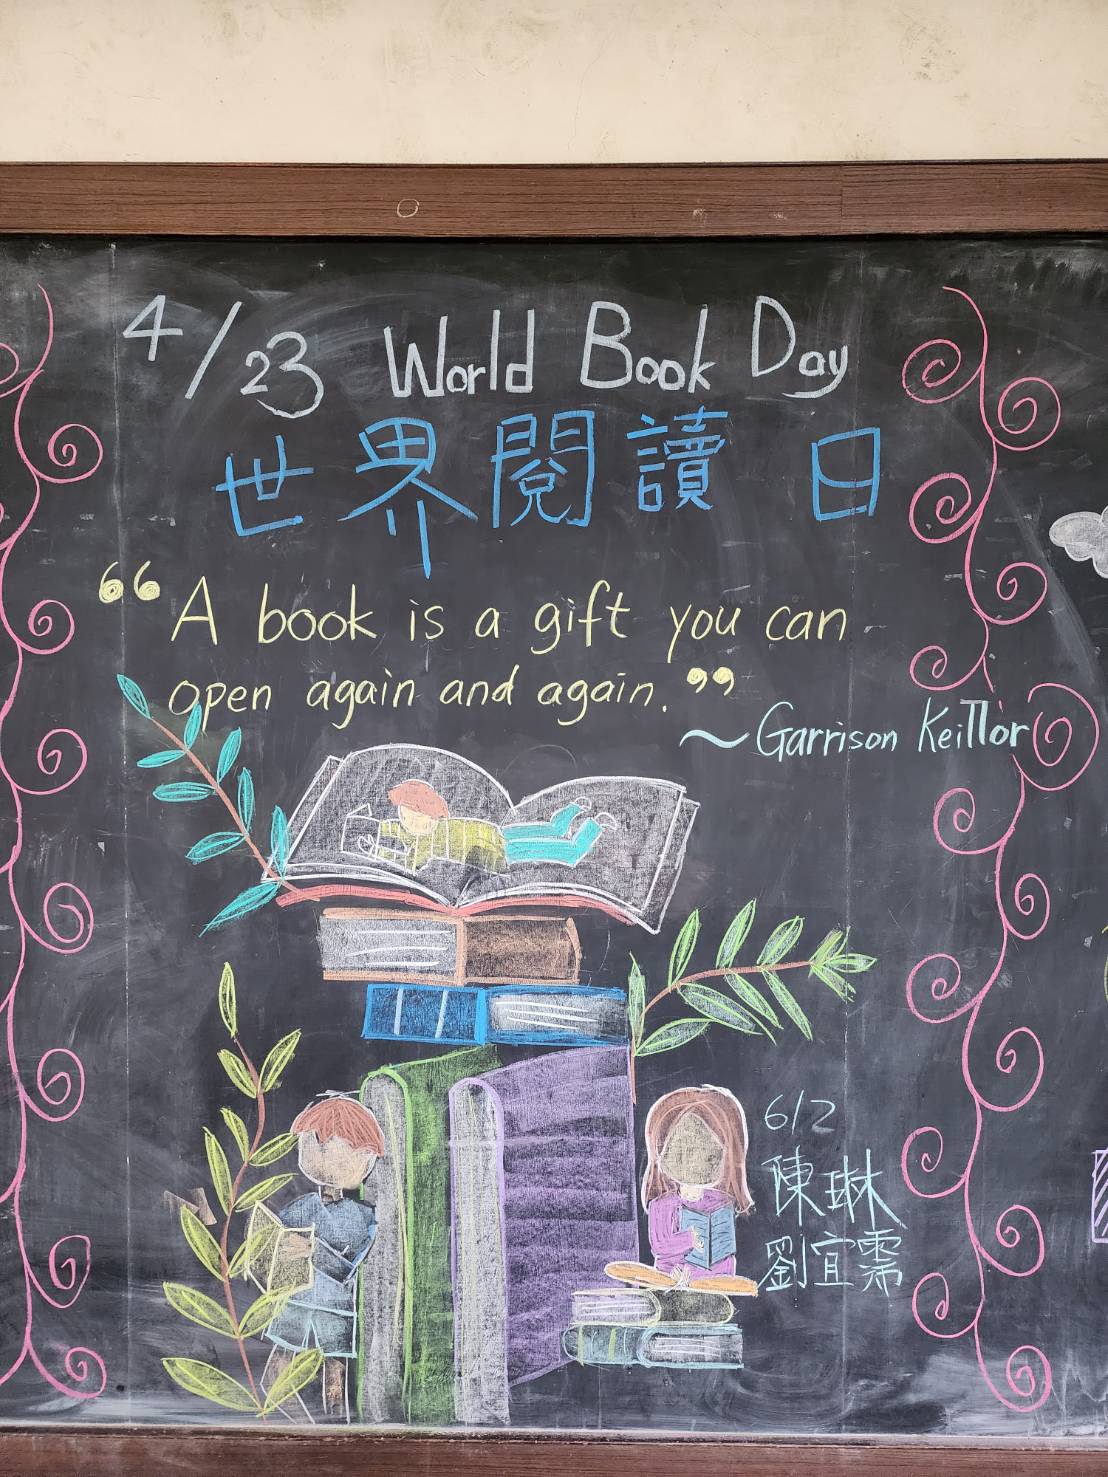 4/23 World Book Day
世界閱讀日
“A book is a gift you can
open again and again.”
~Garrison Keillor
612
陳琳
劉宜霈